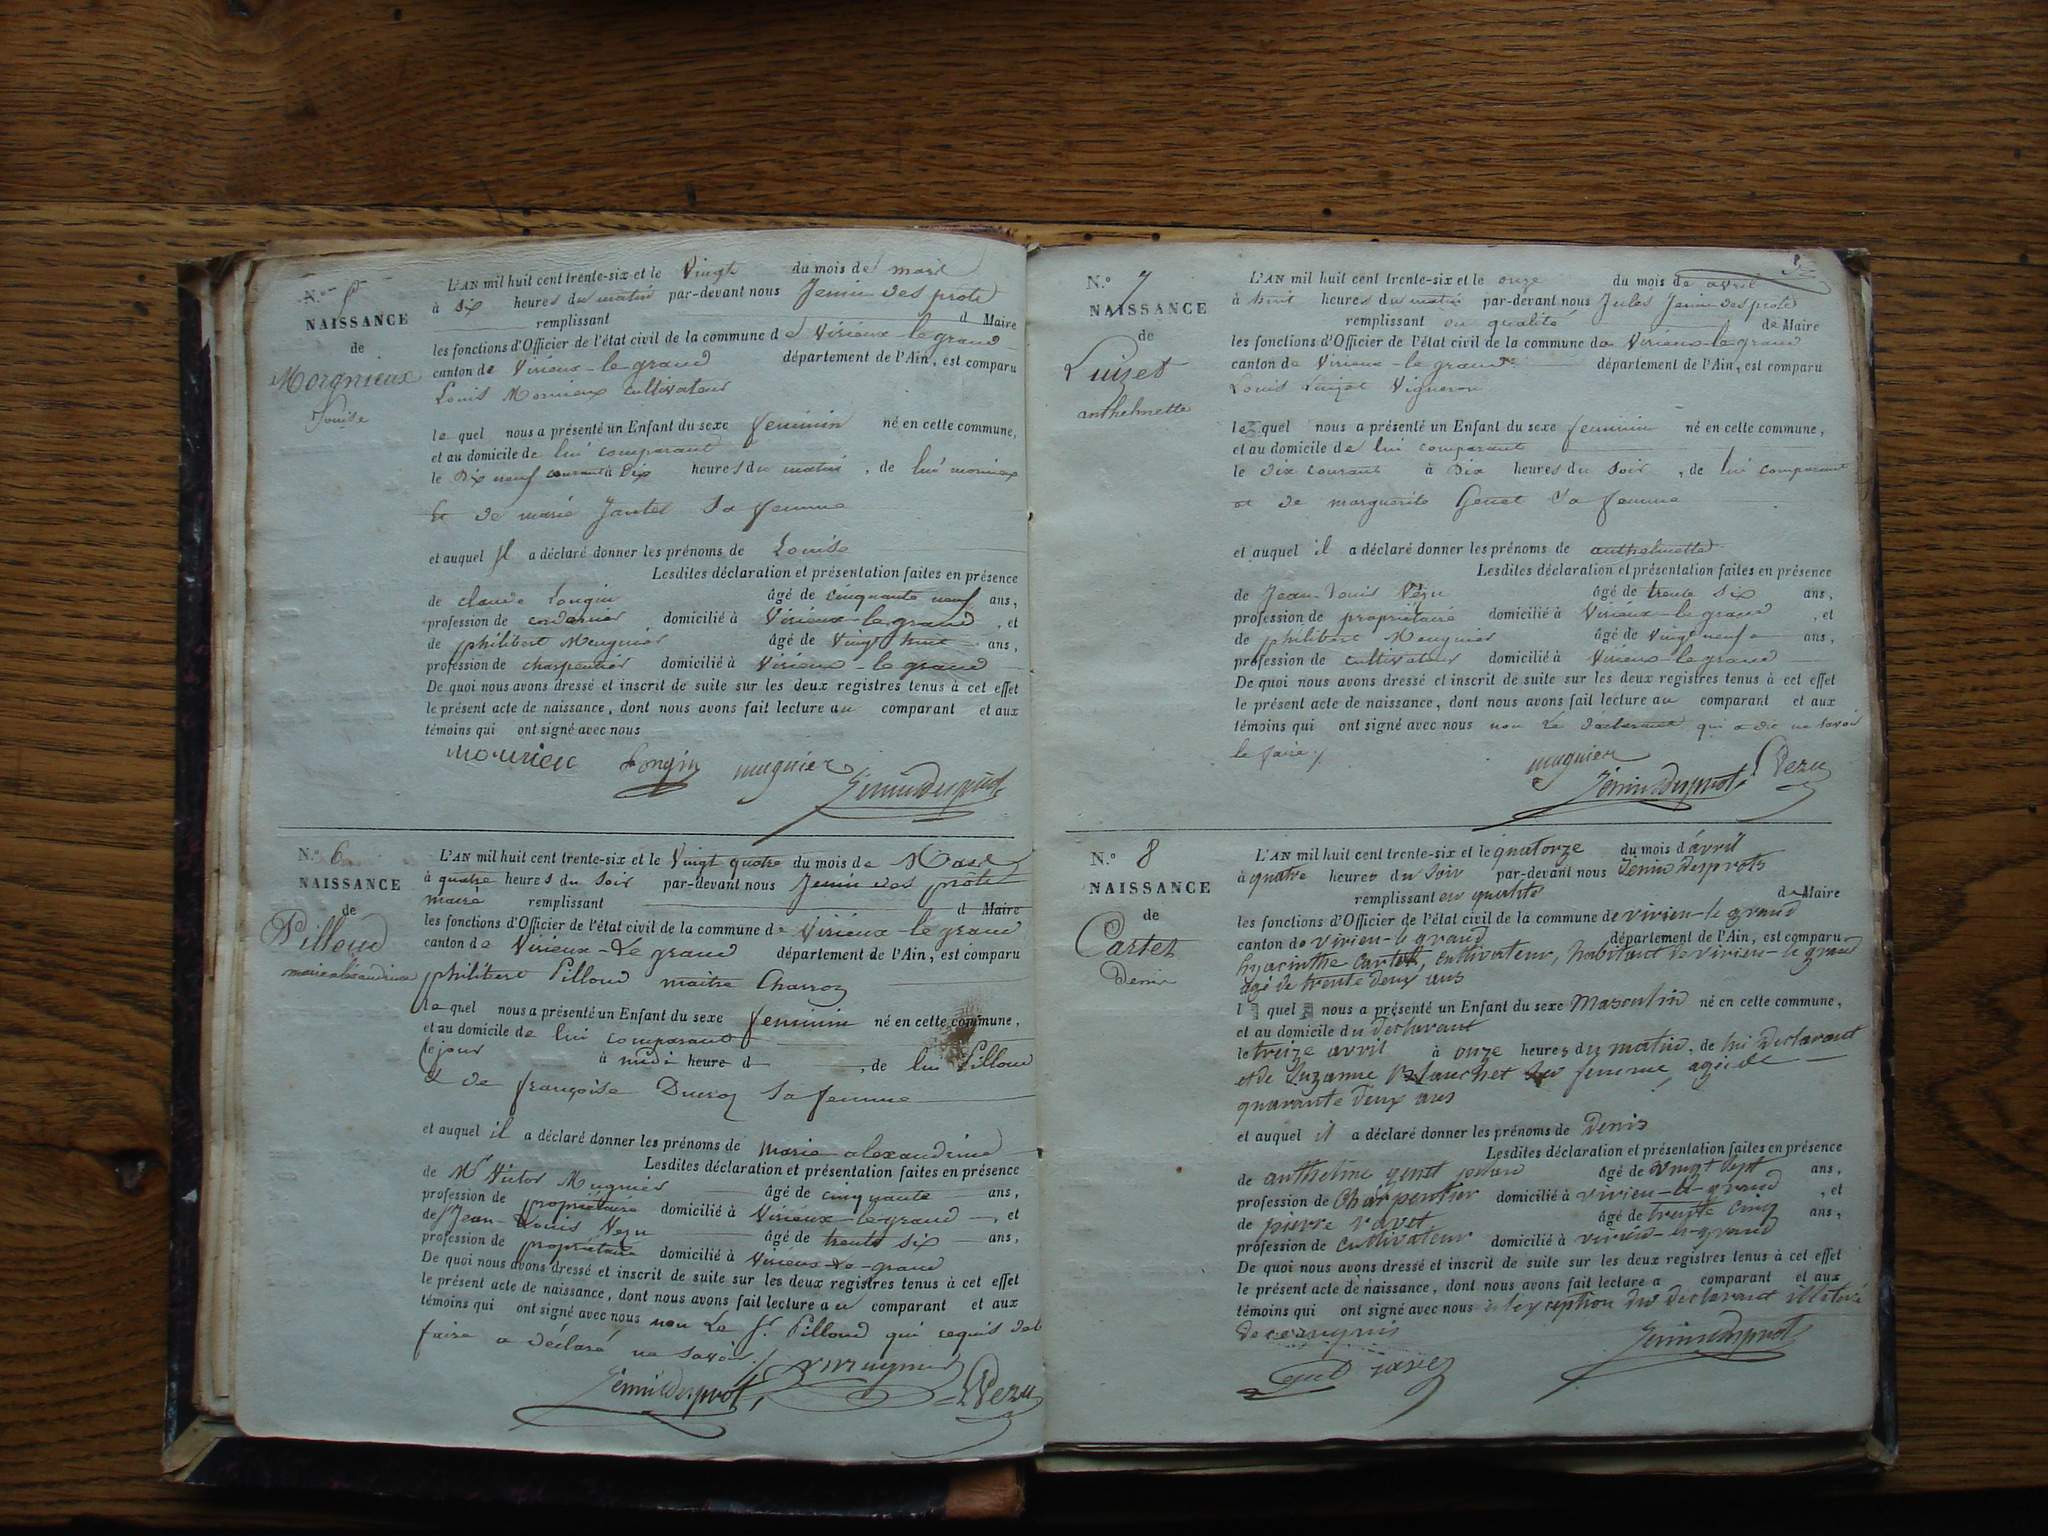 N.° 5
NAISSANCE
de
Morgnieux
Louise
L'AN mil huit cent trente-six et le Vingt du mois de mars
à six heures du matin par-devant nous Jenin des prots
remplissant d Maire
les fonctions d'Officier de l'état civil de la commune de Virieux-le-grand
canton de Virieux-le-grand département de l'Ain, est comparu
Louis Mornieux cultivateur
le quel nous a présenté un Enfant du sexe feminin né en cette commune,
et au domicile de lui comparant
le Dix neuf courant à Dix heures du matin, de lui mornieux
Et de marie Jantet sa femme
et auquel il a déclaré donner les prénoms de Louise
Lesdites déclaration et présentation faites en présence
de claude Longin âgé de cinquante neuf ans,
profession de cordonnier domicilié à Virieux-le-grand, et
de philibert Meugnier âgé de Vingt huit ans,
profession de charpentier domicilié à Virieux-le-grand
De quoi nous avons dressé et inscrit de suite sur les deux registres tenus à cet effet
le présent acte de naissance, dont nous avons fait lecture au comparant et aux
témoins qui ont signé avec nous
mournieu Longin mugnier
Jenin Desprots
N.° 6
NAISSANCE
de
Pilloud
marie alexandrine
L'AN mil huit cent trente-six et le Vingt quatre du mois de Mars
à quatre heures du soir par-devant nous Jenin des prots
maire remplissant d Maire
les fonctions d'Officier de l'état civil de la commune de Virieux-le-grand
canton de Virieux-Le-grand département de l'Ain, est comparu
philibert Pilloud maitre Charron
le quel nous a présenté un Enfant du sexe feminin né en cette commune,
et au domicile de lui comparant
le jour à midi heure d , de lui Pilloud
Et de françoise Ducroz sa femme
et auquel il a déclaré donner les prénoms de marie alexandrine
Lesdites déclaration et présentation faites en présence
de Mr Victor Mugnier âgé de cinquante ans,
profession de propriétaire domicilié à Virieux-le-grand, et
de Jean-Louis Vezu âgé de trente six ans,
profession de propriétaire domicilié à Virieux-Le-grand
De quoi nous avons dressé et inscrit de suite sur les deux registres tenus à cet effet
le présent acte de naissance, dont nous avons fait lecture au comparant et aux
témoins qui ont signé avec nous non Le Sr. Pilloud qui requis de le
faire a déclaré ne savoir
Jenin Desprots, V Mugnier Vezu
N.° 7
NAISSANCE
de
Luizet
anthelmette
L'AN mil huit cent trente-six et le onze du mois de avril
à huit heures du matin par-devant nous Jules Jenin des prots
remplissant en qualité de Maire
les fonctions d'Officier de l'état civil de la commune de Virieux-le-grand
canton de Virieux-le-grand département de l'Ain, est comparu
Louis Luizet Vigneron
le quel nous a présenté un Enfant du sexe feminin né en cette commune,
et au domicile de lui comparant
le Dix courant à Dix heures du soir, de lui comparant
et de marguerite Genet sa femme
et auquel il a déclaré donner les prénoms de anthelmette
Lesdites déclaration et présentation faites en présence
de Jean-Louis Vezu âgé de trente six ans,
profession de propriétaire domicilié à Virieux-le-grand, et
de philibert Meugnier âgé de Vingt neuf ans,
profession de cultivateur domicilié à Virieux-le-grand
De quoi nous avons dressé et inscrit de suite sur les deux registres tenus à cet effet
le présent acte de naissance, dont nous avons fait lecture au comparant et aux
témoins qui ont signé avec nous non Le déclarant qui a dit ne savoir
le faire
mugnier Vezu
Jenin Desprots
N.° 8
NAISSANCE
de
Cartet
Denis
L'AN mil huit cent trente-six et le quatorze du mois d'avril
à quatre heures du Soir par-devant nous Jenin Desprots
remplissant en qualité de Maire
les fonctions d'Officier de l'état civil de la commune de virieu-le grand
canton de virieu-le grand département de l'Ain, est comparu
hyacinthe Cartet, cultivateur, habitant de virieu-le grand
agé de trente deux ans
l quel nous a présenté un Enfant du sexe Masculin né en cette commune,
et au domicile du declarant
le treize avril à onze heures du matin, de lui declarant
et de Suzanne Blanchet sa femme, agée de
quarante deux ans
et auquel il a déclaré donner les prénoms de Denis
Lesdites déclaration et présentation faites en présence
de anthelme genet âgé de vingt sept ans,
profession de Charpentier domicilié à virieu-le-grand, et
de pierre ravet âgé de trente cinq ans,
profession de cultivateur domicilié à virieu-le-grand
De quoi nous avons dressé et inscrit de suite sur les deux registres tenus à cet effet
le présent acte de naissance, dont nous avons fait lecture a comparant et aux
témoins qui ont signé avec nous à l'exception du declarant illetré
de ce enquis
Jenin Desprots